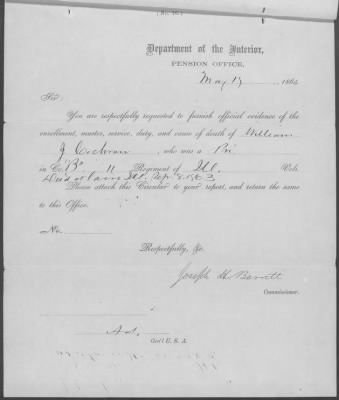 Department of the Interior,
PENSION OFFICE,
May 17, 1864
Sir:
You are respectfully requested to furnish official evidence of the
enrollment, muster, service, duty, and cause of death of William
J Cochran, who was a Pri
in Co. "B" 11 Regiment of Ill. Vols.
Died at Ill. Sep 1863
Please attach this Circular to your report, and return the same
to this Office.
No.
Respectfully, &c.
Joseph H Barrett
Commissioner.
Adj.
Gen'l U. S. A.